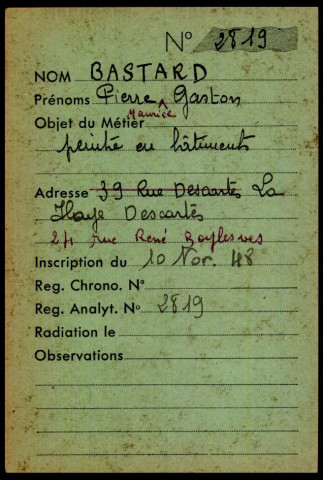 N° 2819
NOM BASTARD
Prénoms Pierre Maurice Gaston
Objet du Métier
peintre en bâtiments
Adresse 39 Rue Descartes La
Haye Descartes
24 rue René Boylesves
Inscription du 10 Nov. 48
Reg. Chrono. N°
Reg. Analyt. No 2819
Radiation le
Observations